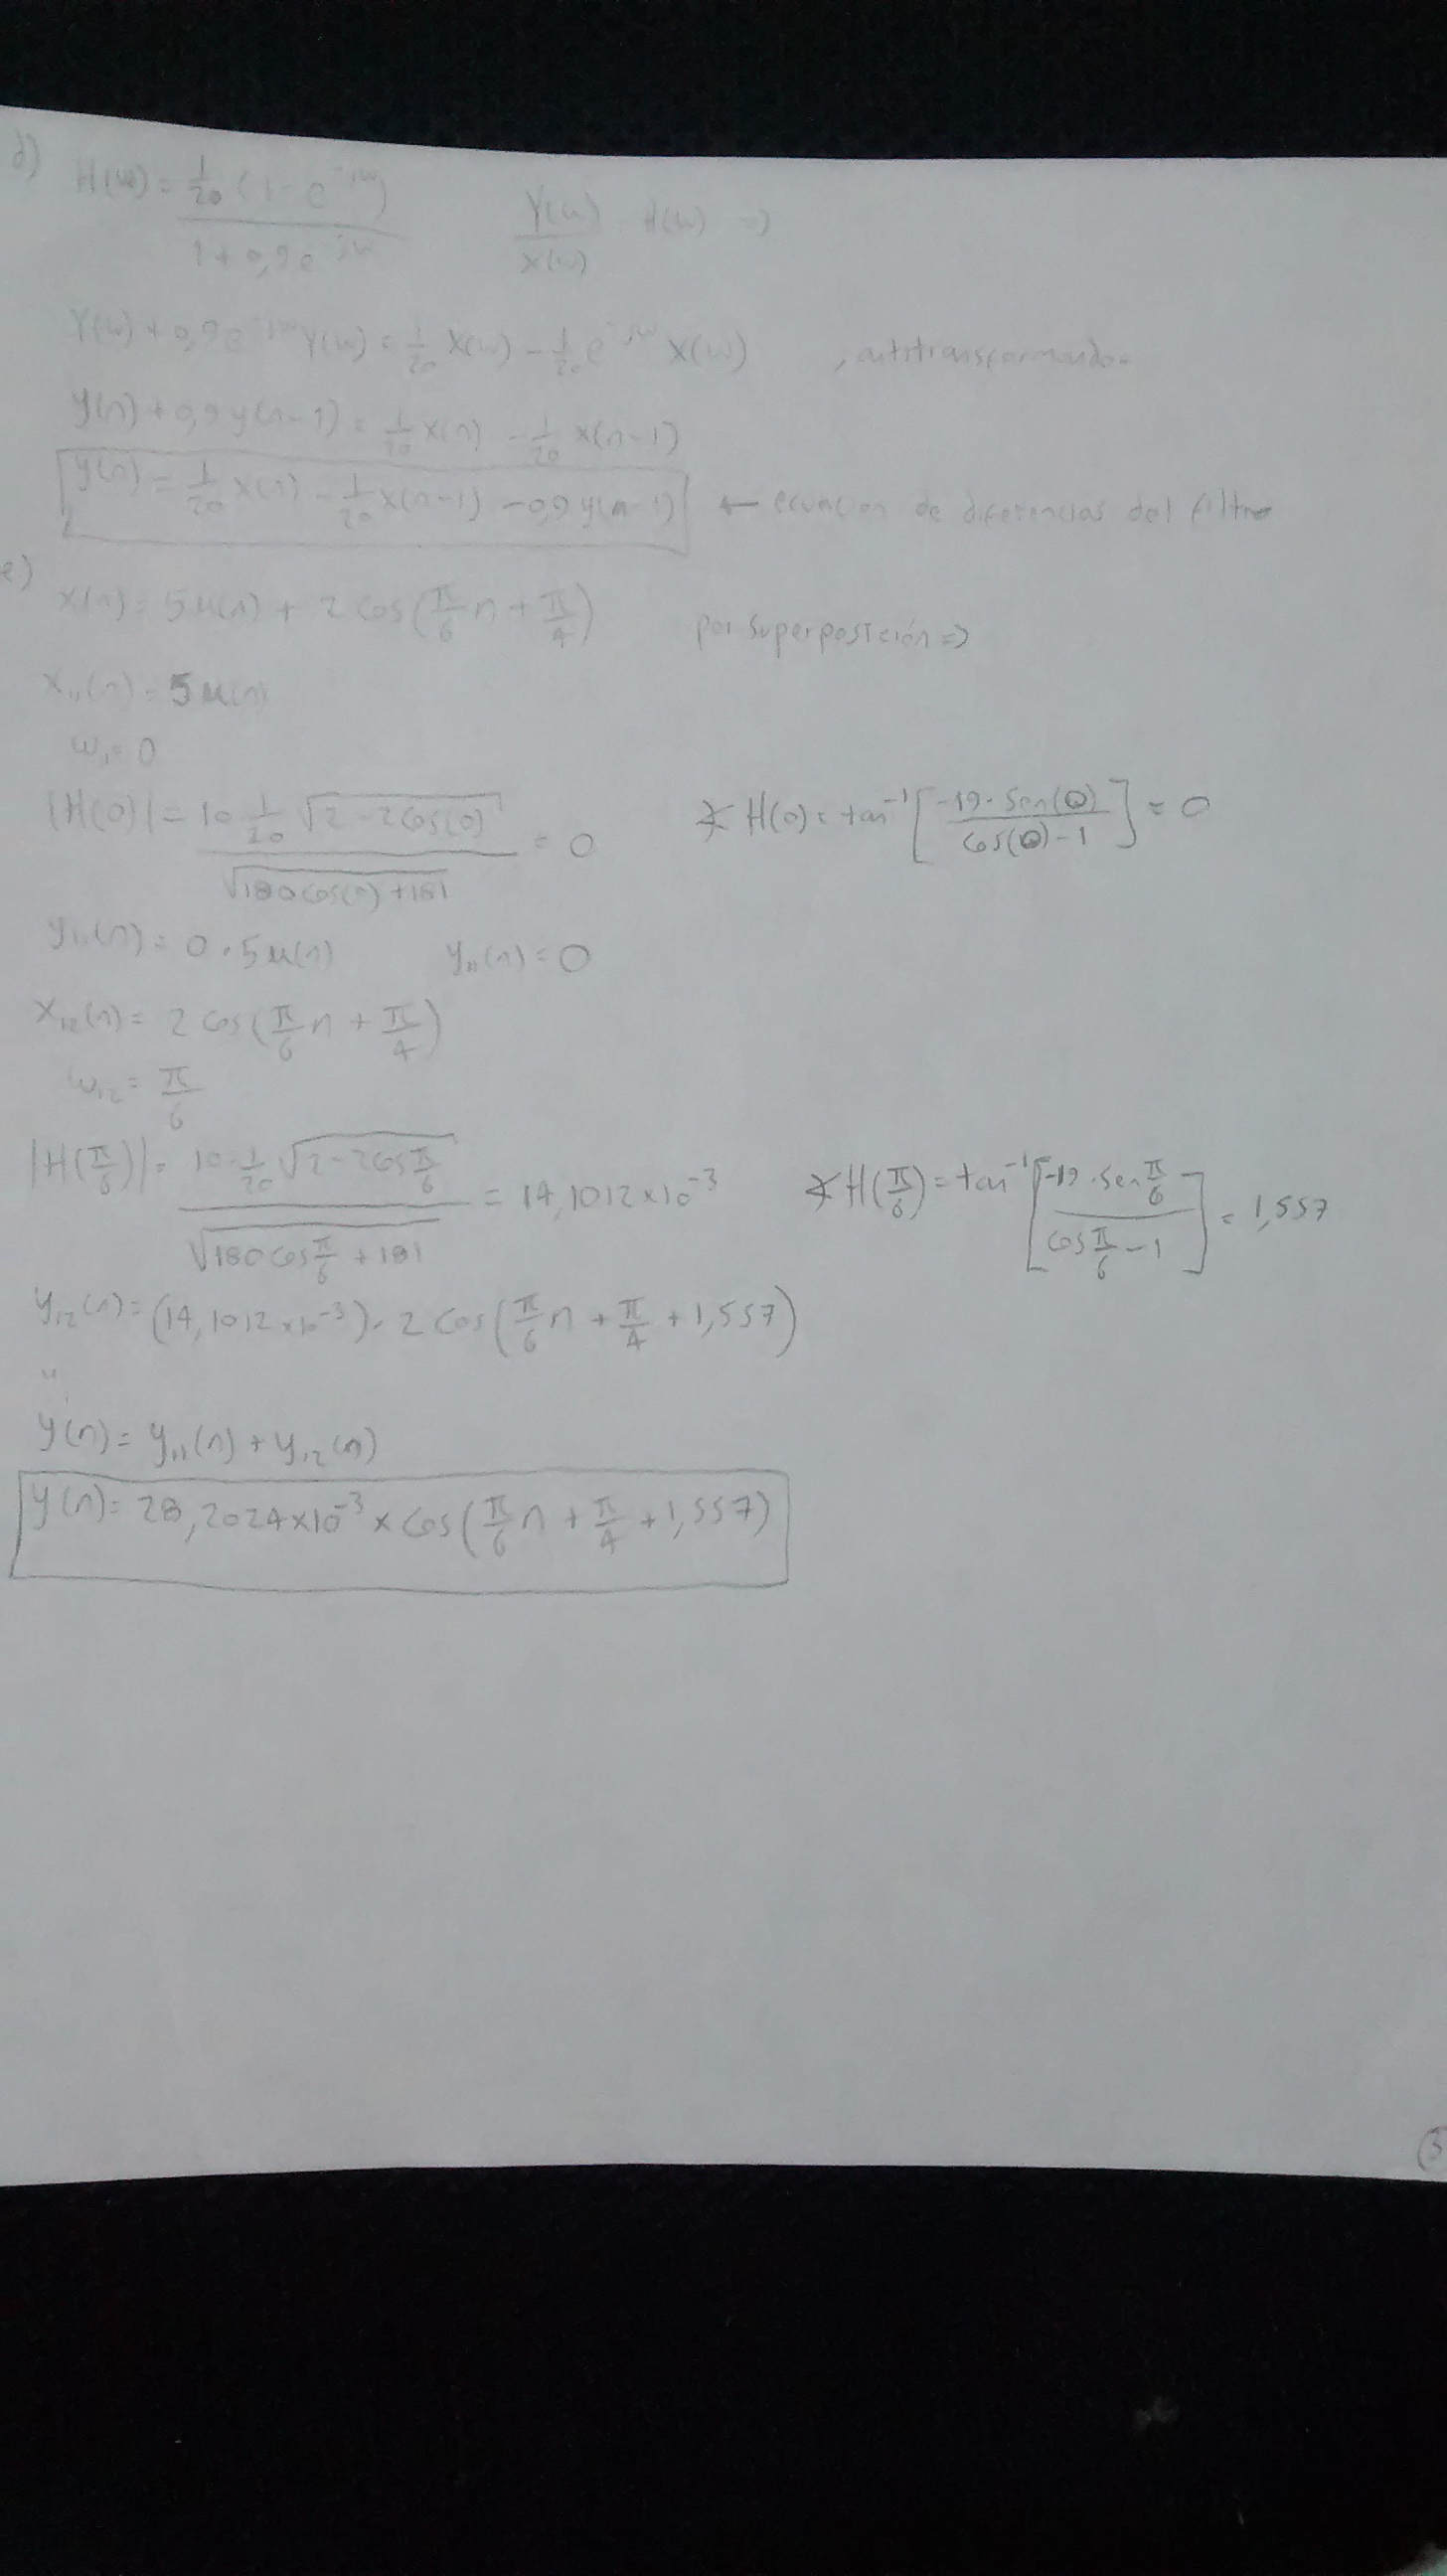 d) H(w) = 1/20 (1 - e^-jw) / 1 + 0,9 e^-jw    Y(w)/X(w) = H(w) =>
Y(w) + 0,9 e^-jw Y(w) = 1/20 X(w) - 1/20 e^-jw X(w)    , antitransformando =
y(n) + 0,9 y(n-1) = 1/20 x(n) - 1/20 x(n-1)
y(n) = 1/20 x(n) - 1/20 x(n-1) - 0,9 y(n-1)    ← ecuacion de diferencias del filtro
e) x(n) = 5 u(n) + 2 cos(π/6 n + π/4)    por superposición =>
x₁₁(n) = 5 u(n)
w₁ = 0
|H(0)| = 10 · 1/20 √(2 - 2 cos(0)) / √(180 cos(0) + 181) = 0    ∡ H(0) = tan⁻¹ [ -19 · sen(0) / cos(0) - 1 ] = 0
y₁₁(n) = 0 · 5 u(n)    y₁₁(n) = 0
x₁₂(n) = 2 cos(π/6 n + π/4)
w₁₂ = π/6
|H(π/6)| = 10 · 1/20 √(2 - 2 cos π/6) / √(180 cos π/6 + 181) = 14,1012 x 10⁻³    ∡ H(π/6) = tan⁻¹ [ -19 · sen π/6 / cos π/6 - 1 ] = 1,557
y₁₂(n) = (14,1012 x 10⁻³) · 2 cos(π/6 n + π/4 + 1,557)
y(n) = y₁₁(n) + y₁₂(n)
y(n) = 28,2024 x 10⁻³ x cos(π/6 n + π/4 + 1,557)
3